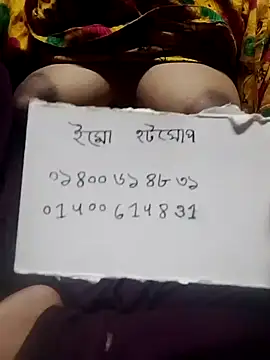 ইমো হটসোপ
০১৪০০৬১৪৮৩১
01400614831